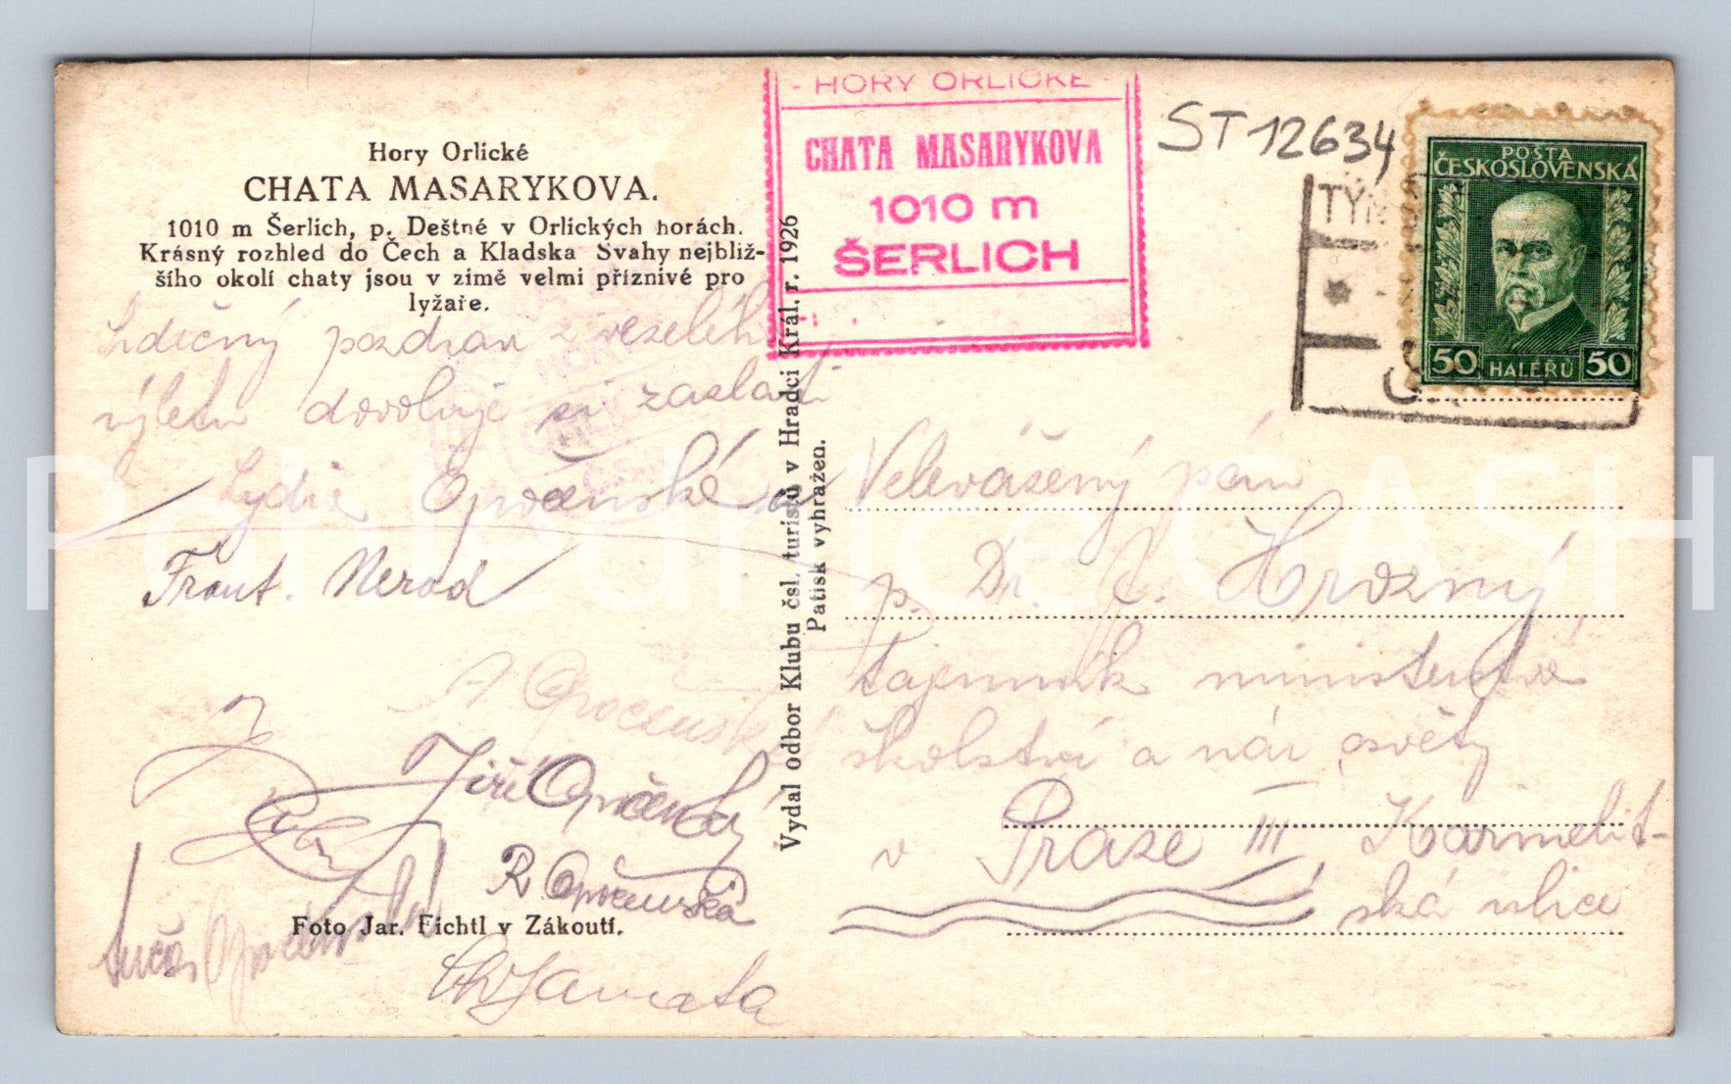 Hory Orlické
CHATA MASARYKOVA.
1010 m Šerlich, p. Deštné v Orlických horách.
Krásný rozhled do Čech a Kladska Svahy nejbliž-
šího okolí chaty jsou v zimě velmi příznivé pro
lyžaře.
Srdečný pozdrav z veseléh
výletu dovoluje si zaslati
Lydie Opočenské a
Frant. Nerad
A Opočenský
Jiří Opočenský
R Opočenská
Opočenská
Foto Jar. Fichtl v Zákoutí.
Vydal odbor Klubu čsl. turistů v Hradci Král. r. 1926
Patisk vyhražen.
- HORY ORLICKÉ -
CHATA MASARYKOVA
1010 m
ŠERLICH
ST12634
POŠTA
ČESKOSLOVENSKÁ
50 HALÉŘŮ 50
TÝN
Velevážený pán
p. Dr. J. Hrozný
tajemník ministerstva
školství a nár. osvěty
v Praze III,
Karmelit-
ská ulice